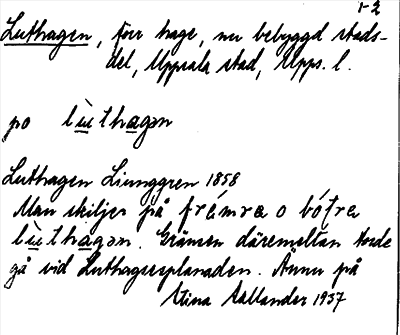 1-2
Luthagen, förr hage, nu bebyggd stads-
del, Uppsala stad, Upps. l.
po lùthagən
Luthagen Ljunggren 1858
Man skiljer på frámra o bó́tra
lùthagən. Gränsen däremellan torde
gå vid Luthagsesplanaden. Ännu på
Stina Sallander 1937